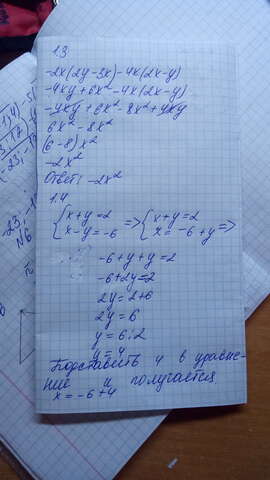 13
-2x(2y-3x)-4x(2x-y)
-4xy+6x²-4x(2x-y)
-4xy+6x²-8x²+4xy
6x²-8x²
(6-8)x²
-2x²
Ответ: -2x²
14
{x+y=2 => {x+y=2
{x-y=-6 {x=-6+y =>
-6+y+y=2
-6+2y=2
2y=2+6
2y=6
y=6:2
y=4
Подставить 4 в уравне-
ние и получается
x=-6+4
N6